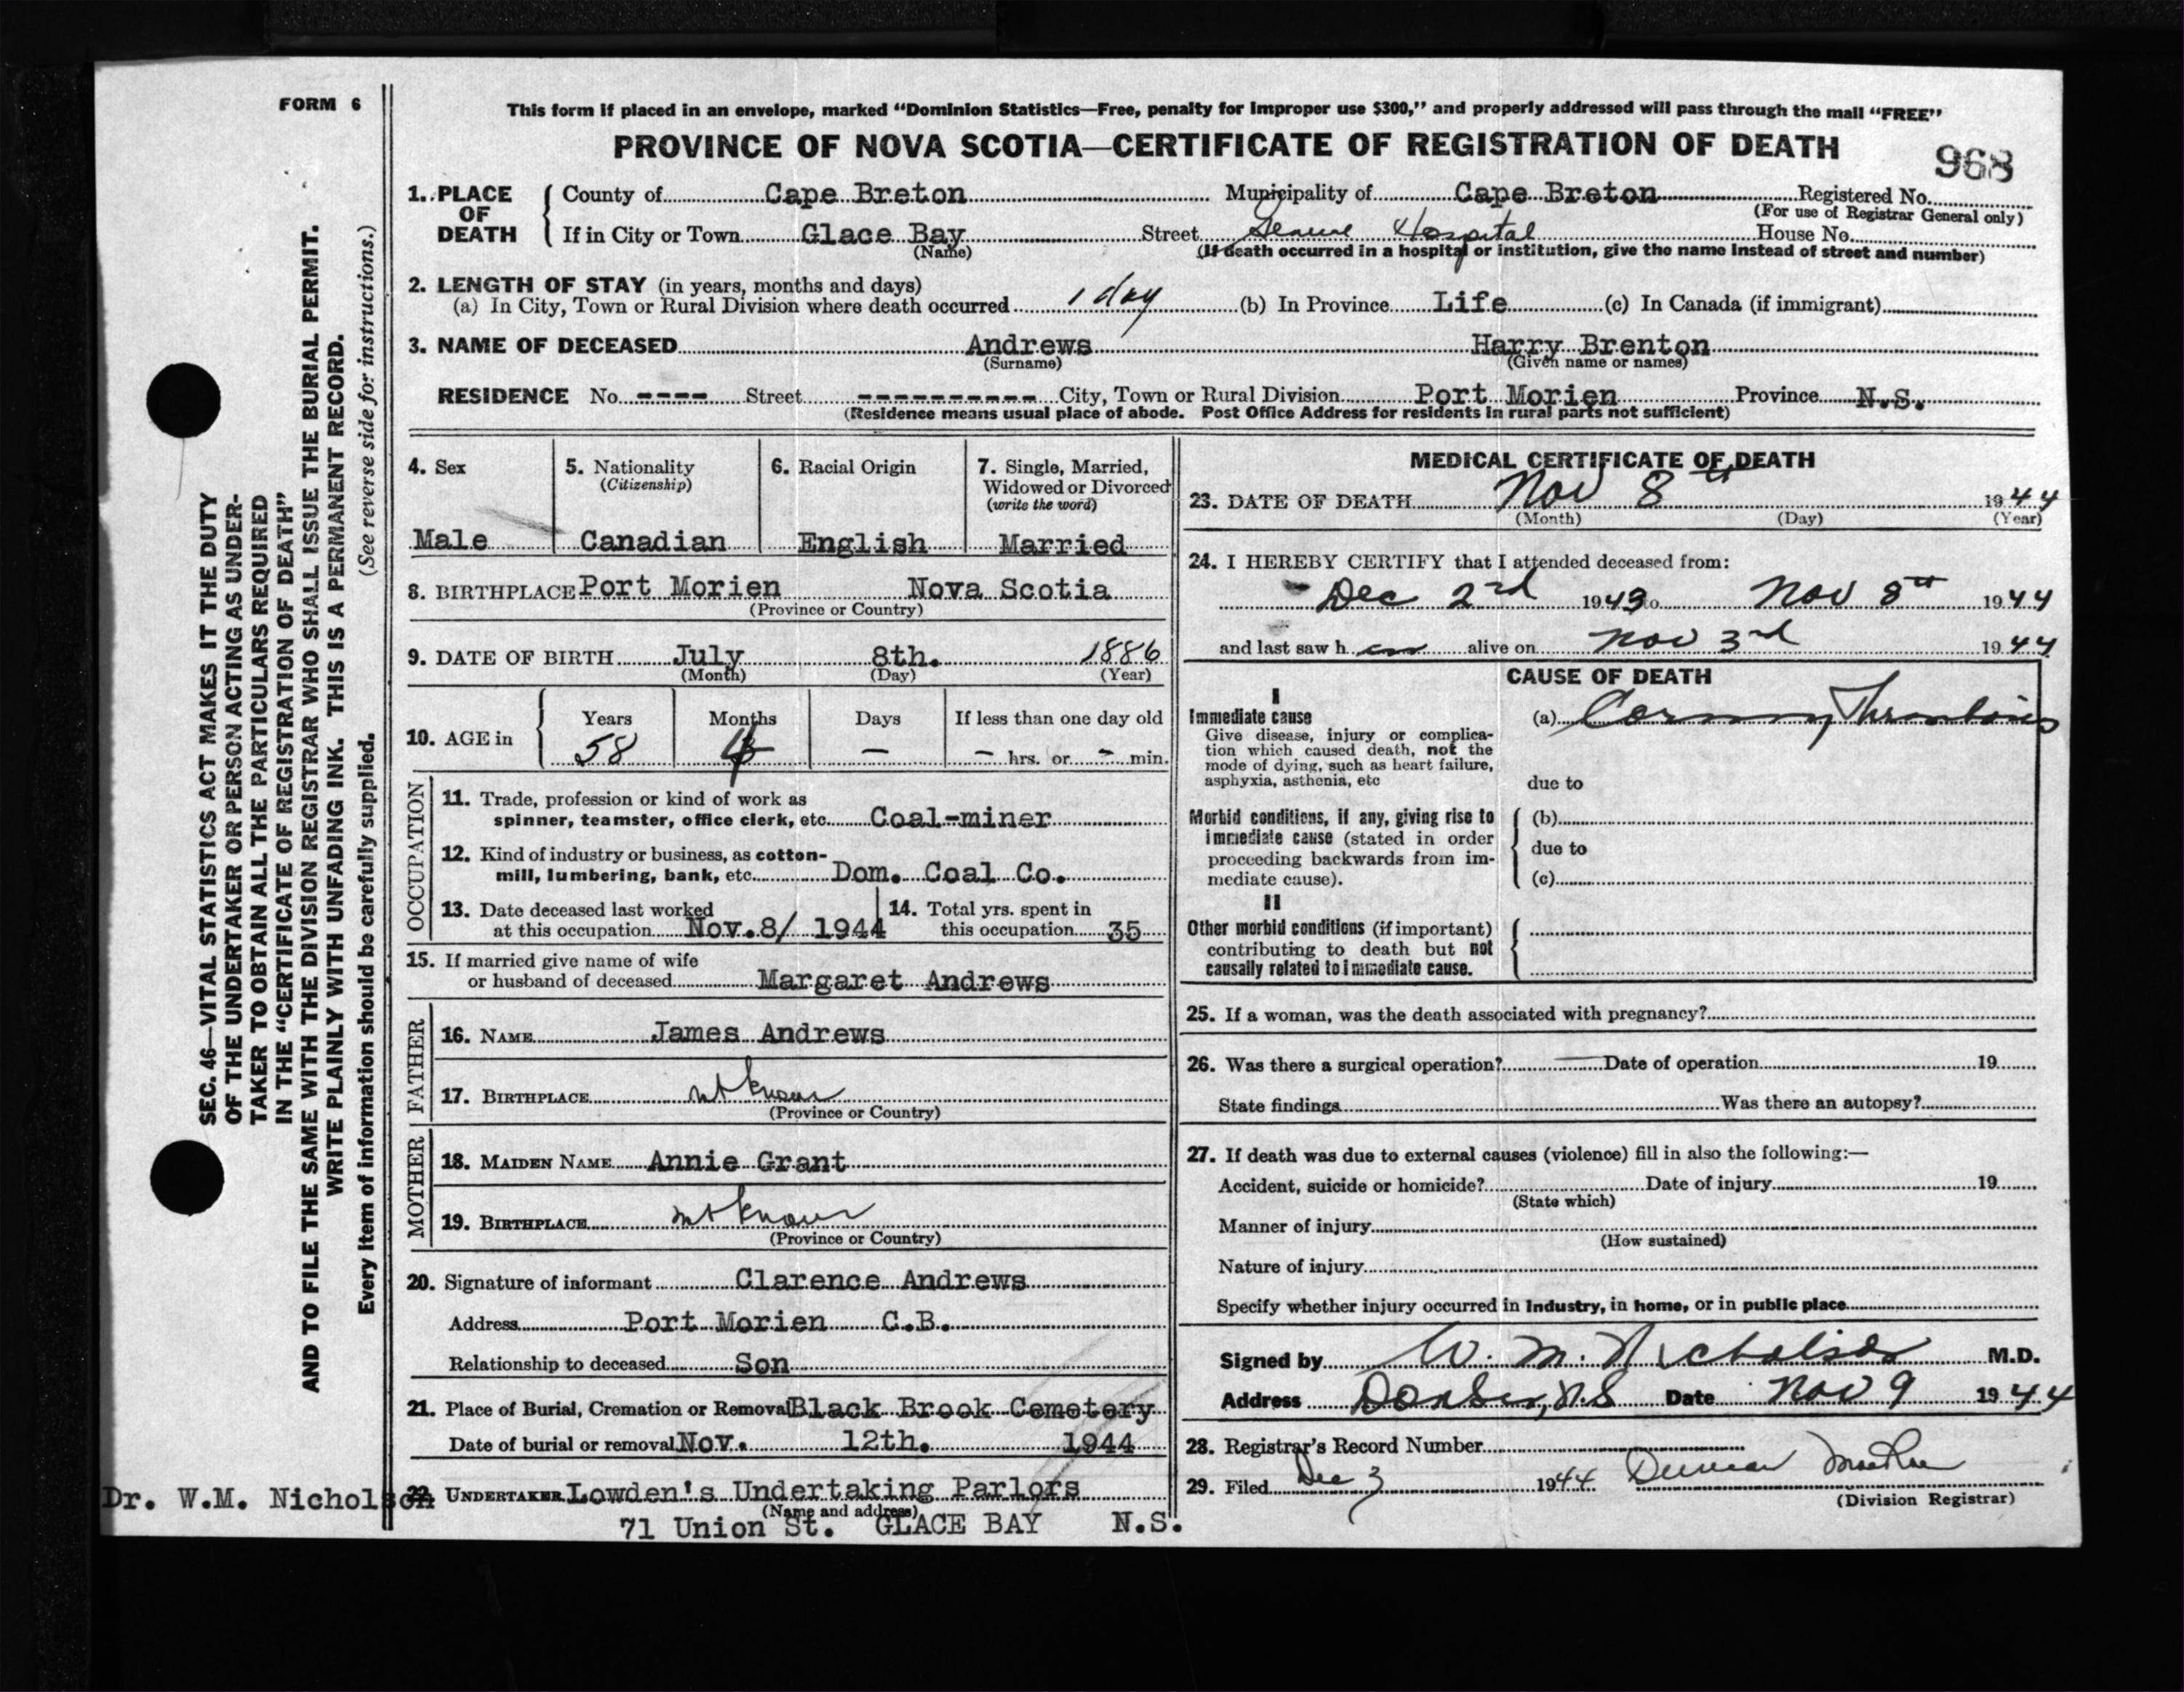 FORM 6
This form if placed in an envelope, marked “Dominion Statistics—Free, penalty for improper use $300,” and properly addressed will pass through the mail “FREE”
PROVINCE OF NOVA SCOTIA—CERTIFICATE OF REGISTRATION OF DEATH
968
1. PLACE OF DEATH { County of Cape Breton Municipality of Cape Breton Registered No.
(For use of Registrar General only)
If in City or Town Glace Bay Street General Hospital House No.
(Name) (If death occurred in a hospital or institution, give the name instead of street and number)
2. LENGTH OF STAY (in years, months and days)
(a) In City, Town or Rural Division where death occurred 1 day (b) In Province Life (c) In Canada (if immigrant)
3. NAME OF DECEASED Andrews Harry Brenton
(Surname) (Given name or names)
RESIDENCE No. ---- Street ---------- City, Town or Rural Division Port Morien Province N.S.
(Residence means usual place of abode. Post Office Address for residents in rural parts not sufficient)
4. Sex
Male
5. Nationality
(Citizenship)
Canadian
6. Racial Origin
English
7. Single, Married,
Widowed or Divorced
(write the word)
Married
8. BIRTHPLACE Port Morien Nova Scotia
(Province or Country)
9. DATE OF BIRTH July 8th. 1886
(Month) (Day) (Year)
10. AGE in { Years Months Days If less than one day old
58 4 — – hrs. or – min.
OCCUPATION
11. Trade, profession or kind of work as
spinner, teamster, office clerk, etc. Coal-miner
12. Kind of industry or business, as cotton-
mill, lumbering, bank, etc. Dom. Coal Co.
13. Date deceased last worked
at this occupation Nov.8/ 1944
14. Total yrs. spent in
this occupation 35
15. If married give name of wife
or husband of deceased Margaret Andrews
FATHER
16. NAME James Andrews
17. BIRTHPLACE not known
(Province or Country)
MOTHER
18. MAIDEN NAME Annie Grant
19. BIRTHPLACE not known
(Province or Country)
20. Signature of informant Clarence Andrews
Address Port Morien C.B.
Relationship to deceased Son
21. Place of Burial, Cremation or Removal Black Brook Cemetery
Date of burial or removal Nov. 12th. 1944
22. UNDERTAKER Lowden's Undertaking Parlors
(Name and address)
71 Union St. GLACE BAY N.S.
MEDICAL CERTIFICATE OF DEATH
23. DATE OF DEATH Nov 8th 1944
(Month) (Day) (Year)
24. I HEREBY CERTIFY that I attended deceased from:
Dec 2nd 1943 to Nov 8th 1944
and last saw h im alive on Nov 3rd 1944
CAUSE OF DEATH
I
Immediate cause
Give disease, injury or complica-
tion which caused death, not the
mode of dying, such as heart failure,
asphyxia, asthenia, etc
(a) Coronary Thrombosis
due to
Morbid conditions, if any, giving rise to
immediate cause (stated in order
proceeding backwards from im-
mediate cause).
(b)
due to
(c)
II
Other morbid conditions (if important)
contributing to death but not
causally related to immediate cause.
25. If a woman, was the death associated with pregnancy?
26. Was there a surgical operation? — Date of operation 19
State findings Was there an autopsy?
27. If death was due to external causes (violence) fill in also the following:—
Accident, suicide or homicide? Date of injury 19
(State which)
Manner of injury
(How sustained)
Nature of injury
Specify whether injury occurred in industry, in home, or in public place
Signed by W. M. Nicholson M.D.
Address N.S Date Nov 9 1944
28. Registrar's Record Number
29. Filed Dec 3 1944 Duncan
(Division Registrar)
SEC. 46—VITAL STATISTICS ACT MAKES IT THE DUTY
OF THE UNDERTAKER OR PERSON ACTING AS UNDER-
TAKER TO OBTAIN ALL THE PARTICULARS REQUIRED
IN THE “CERTIFICATE OF REGISTRATION OF DEATH”
AND TO FILE THE SAME WITH THE DIVISION REGISTRAR WHO SHALL ISSUE THE BURIAL PERMIT.
WRITE PLAINLY WITH UNFADING INK. THIS IS A PERMANENT RECORD.
Every item of information should be carefully supplied. (See reverse side for instructions.)
Dr. W.M. Nicholson